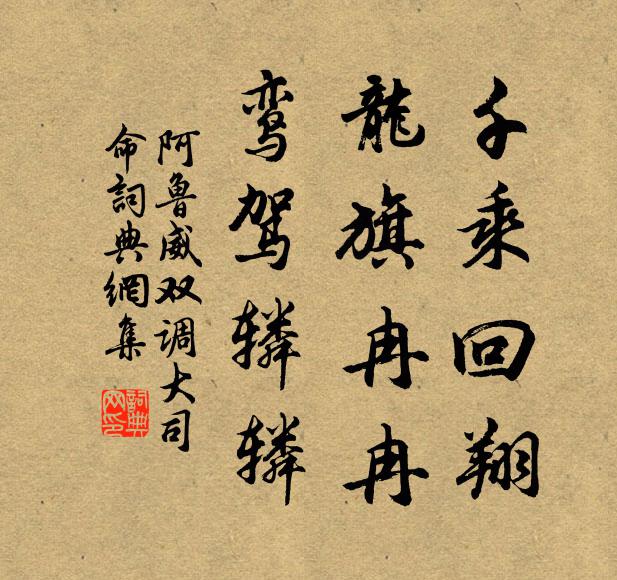 千乘回翔
龍旗冉冉
鸾驾辚辚
阿魯威双调大司
命詞典網集
詞典网印